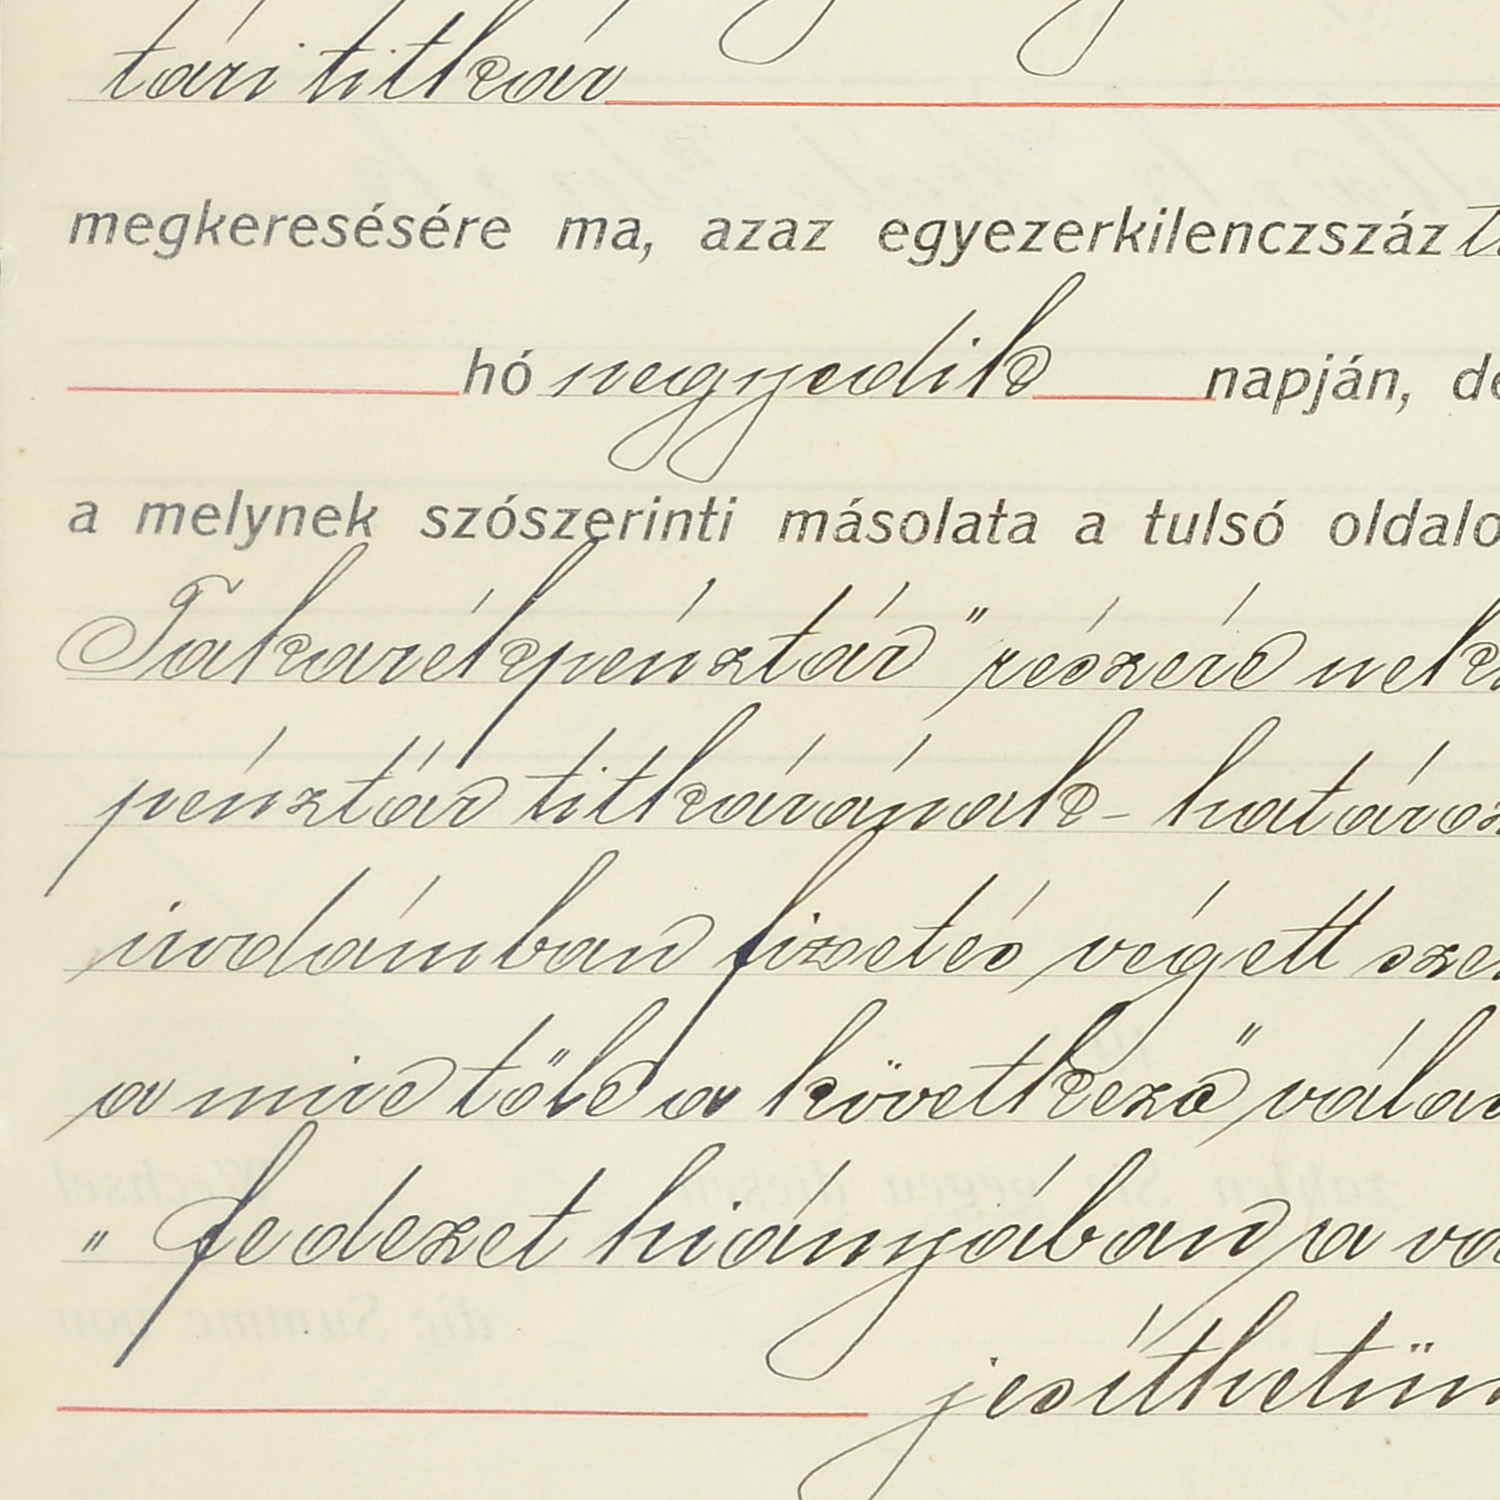 tári titkár
megkeresésére ma, azaz egyezerkilenczszáz
hó negyedik napján,
a melynek szószerinti másolata a tulsó
Takarékpénztár" részére
pénztár titkárának -
irodámban fizetés végett
a mire tőle a következő
" fedezet hiányában a